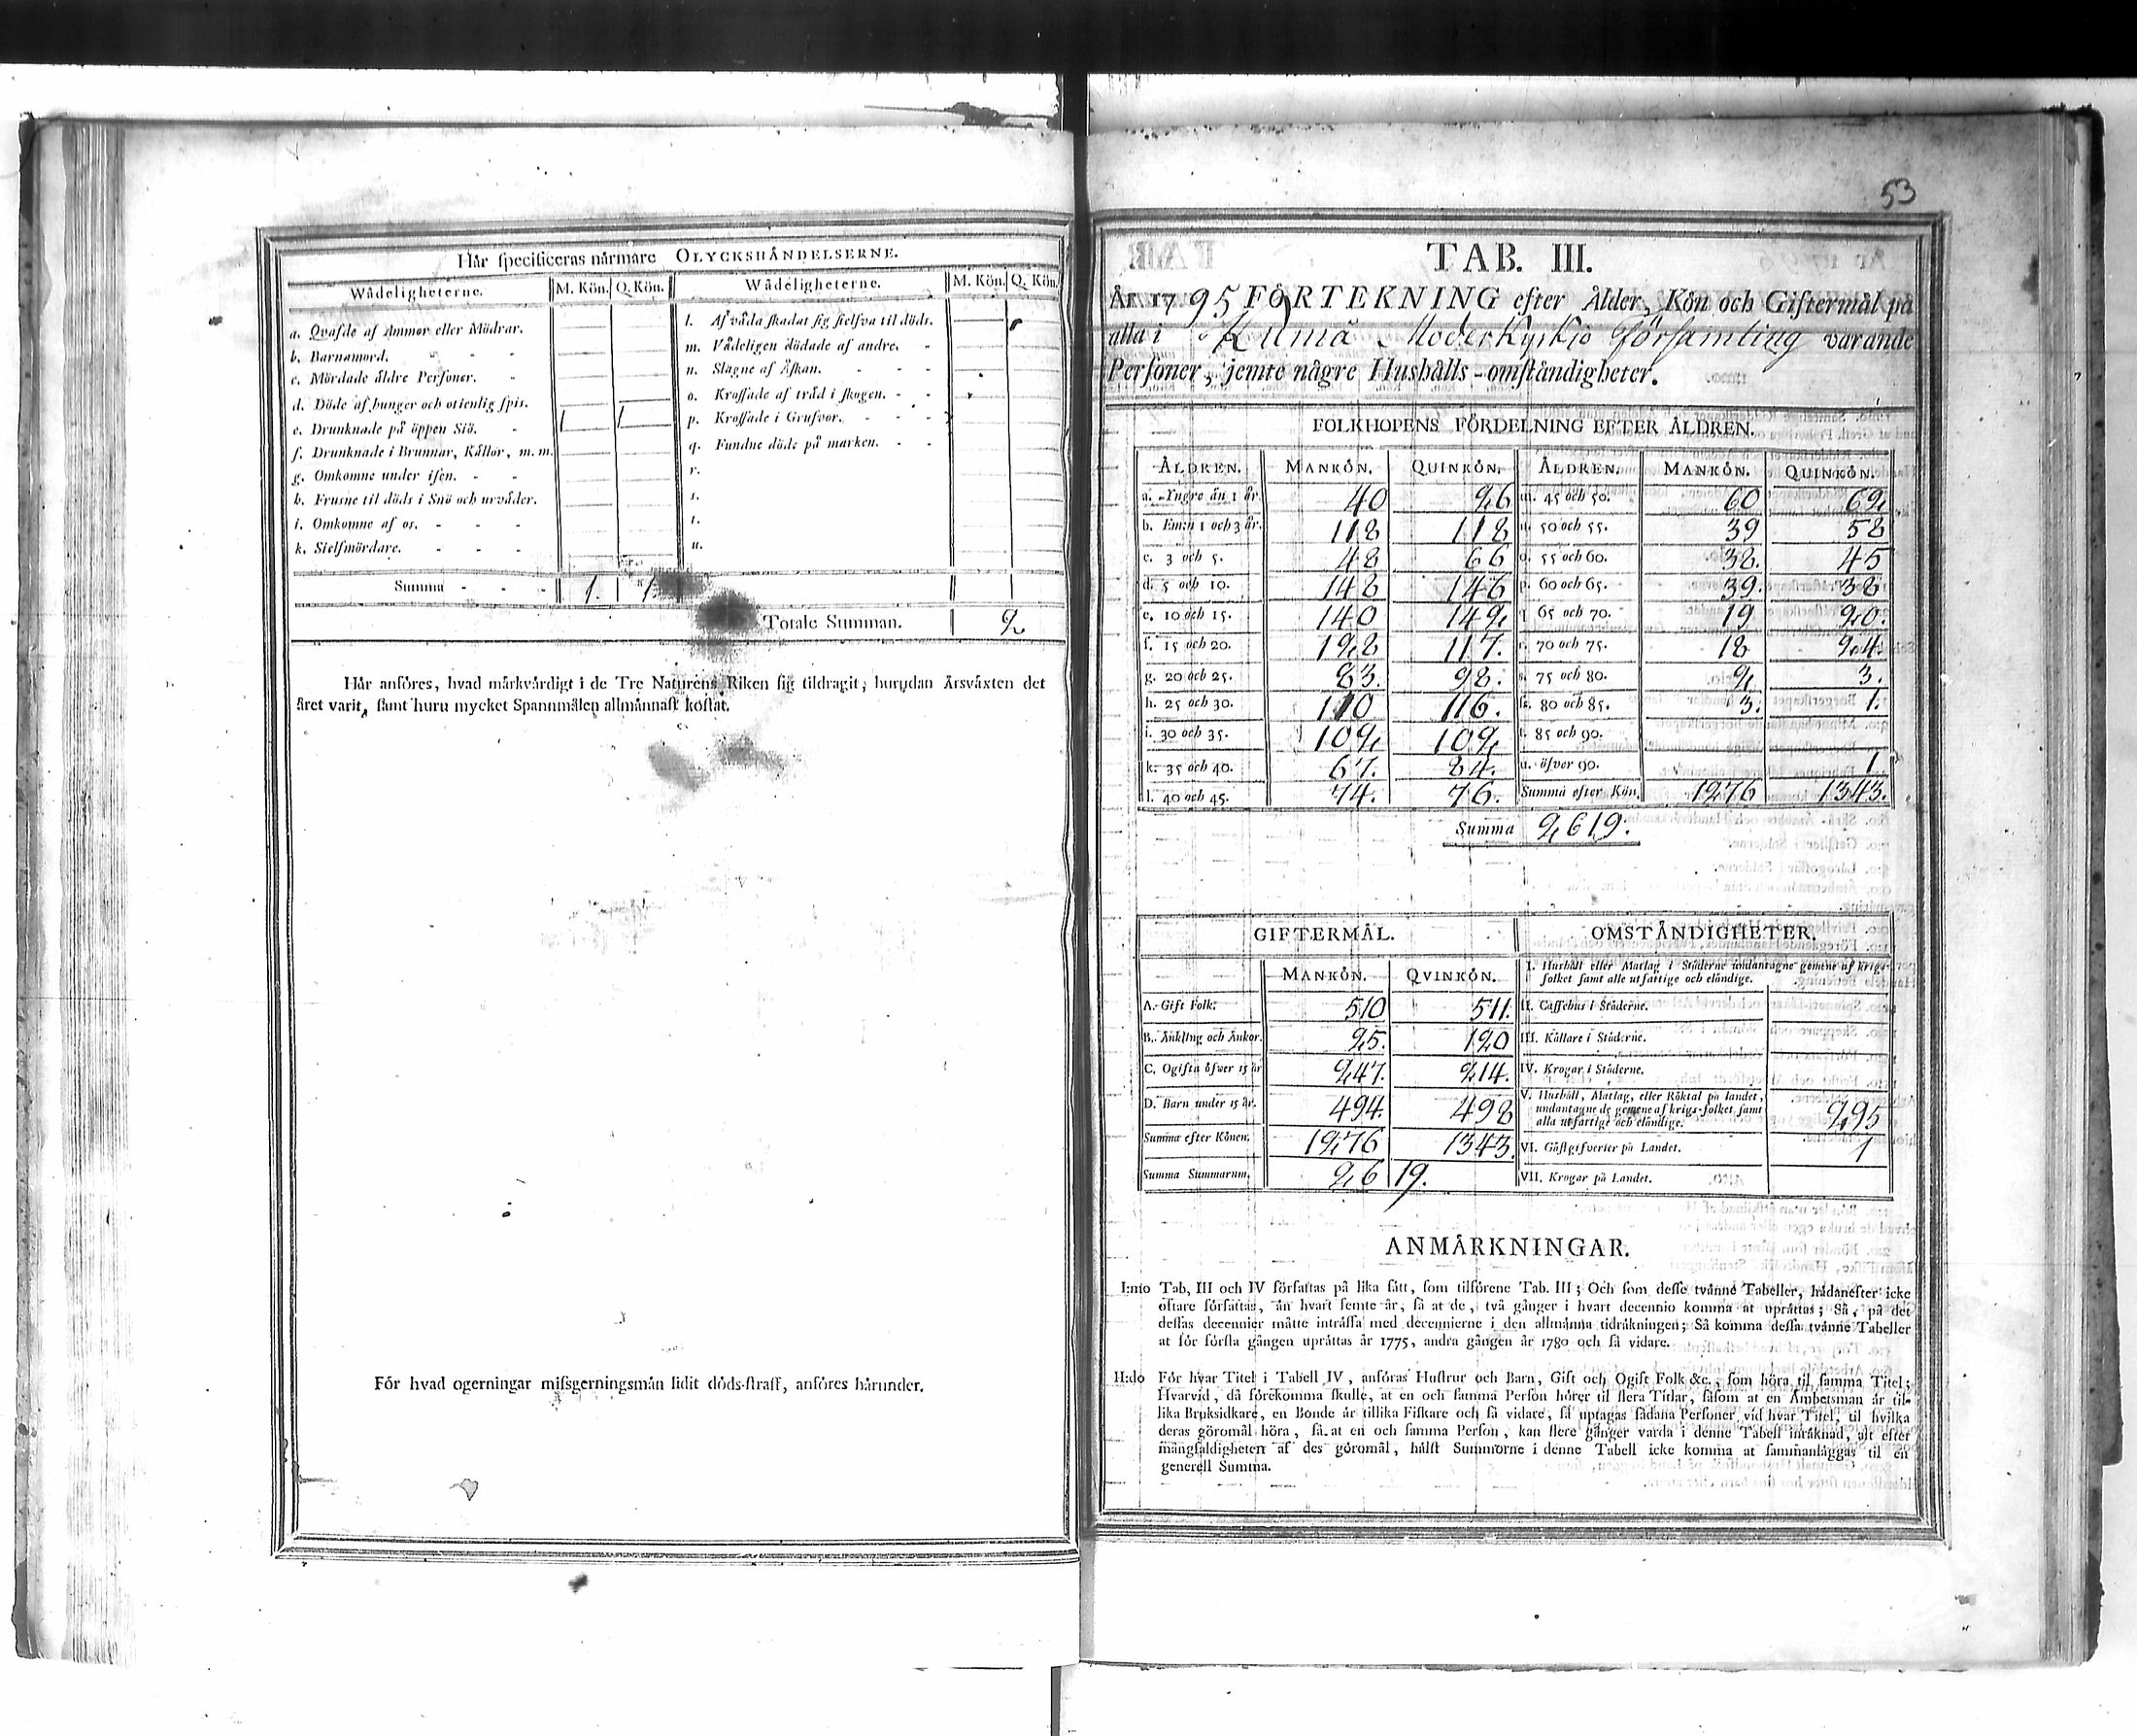 Här specificeras närmare OLYCKSHÄNDELSERNE.
Wådeligheterne. M. Kön. Q. Kön. Wådeligheterne. M. Kön. Q. Kön.
a. Qvafde af Ammor eller Mödrar.
b. Barnamord.
c. Mördade äldre Personer.
d. Döde af hunger och otienlig spis.
e. Drunknade på öppen Siö. 1 1
f. Drunknade i Brunnar, Källor, m. m.
g. Omkomne under isen.
h. Frusne til döds i Snö och urväder.
i. Omkomne af os.
k. Sielfmördare.
l. Af våda skadat sig sielfva til döds.
m. Vådeligen dödade af andre.
n. Slagne af Åskan.
o. Krossade af träd i skogen.
p. Krossade i Grufvor.
q. Fundne döde på marken.
r.
s.
t.
u.
Summa 1. 1.
Totale Summan. 2
Här anföres, hvad märkvärdigt i de Tre Naturens Riken sig tildragit, hurudan Årsväxten det
året varit, samt huru mycket Spannmålen allmännast kostat.
För hvad ogerningar missgerningsmän lidit döds-straff, anföres härunder.
53
TAB. III.
År 1795 FÖRTEKNING efter Ålder, Kön och Giftermål på
alla i Kumå Moderkyrkio Församling varande
Personer, jemte någre Hushålls-omständigheter.
FOLKHOPENS FÖRDELNING EFTER ÅLDREN.
ÅLDREN. MANKÖN. QUINKÖN. ÅLDREN. MANKÖN. QUINKÖN.
a. Yngre än 1 år. 40 26 m. 45 och 50. 60 62
b. Emen 1 och 3 år. 118 118 n. 50 och 55. 39 58
c. 3 och 5. 48 66 o. 55 och 60. 38. 45
d. 5 och 10. 148 146 p. 60 och 65. 39. 38
e. 10 och 15. 140 142 q. 65 och 70. 19 20.
f. 15 och 20. 128 117. r. 70 och 75. 18 24.
g. 20 och 25. 83. 98. s. 75 och 80. 2 3.
h. 25 och 30. 110 116. ss. 80 och 85. 3. 1.
i. 30 och 35. 102 102 t. 85 och 90.
k. 35 och 40. 67. 84. u. öfver 90. 1
l. 40 och 45. 74. 76. Summa efter Kön. 1276 1343.
Summa 2619.
GIFTERMÅL. OMSTÄNDIGHETER.
MANKÖN. QVINKÖN.
A. Gift Folk. 510 511.
B. Änkling och Änkor. 25. 120
C. Ogifta öfwer 15 år 247. 214.
D. Barn under 15 år. 494. 498
Summa efter Könen. 1276 1343.
Summa Summarum. 2619.
I. Hushåll eller Matlag i Städerne undantagne gemene af krigs-
folket samt alle utfattige och eländige.
II. Caffehus i Städerne.
III. Källare i Städerne.
IV. Krogar i Städerne.
V. Hushåll, Matlag, eller Röktal på landet,
undantagne de gemene af krigs-folket samt
alla utfattige och eländige. 295
VI. Gästgifverier på Landet. 1
VII. Krogar på Landet.
ANMÄRKNINGAR.
I:mo Tab. III och IV författas på lika sätt, som tilförene Tab. III; Och som desse tvänne Tabeller, hädanefter icke
oftare författas, än hvart femte år, så at de, två gånger i hvart decennio komma at uprättas; Så, på det
dessas decennier måtte inträffa med decennierne i den allmänna tidräkningen; Så komma dessa tvänne Tabeller
at för första gången uprättas år 1775, andra gången år 1780 och så vidare.
II:do För hvar Titel i Tabell IV, anföras Hustrur och Barn, Gift och Ogift Folk &c., som höra til samma Titel;
Hvarvid, då förekomma skulle, at en och samma Person hörer til flera Titlar, såsom at en Ämbetsman är til-
lika Bruksidkare, en Bonde är tillika Fiskare och så vidare, så uptagas sådana Personer vid hvar Titel, til hvilka
deras göromål höra, så at en och samma Person, kan flere gånger varda i denne Tabell inräknad, alt efter
mångfaldigheten af des göromål, hälst Summorne i denne Tabell icke komma at sammanläggas til en
generell Summa.